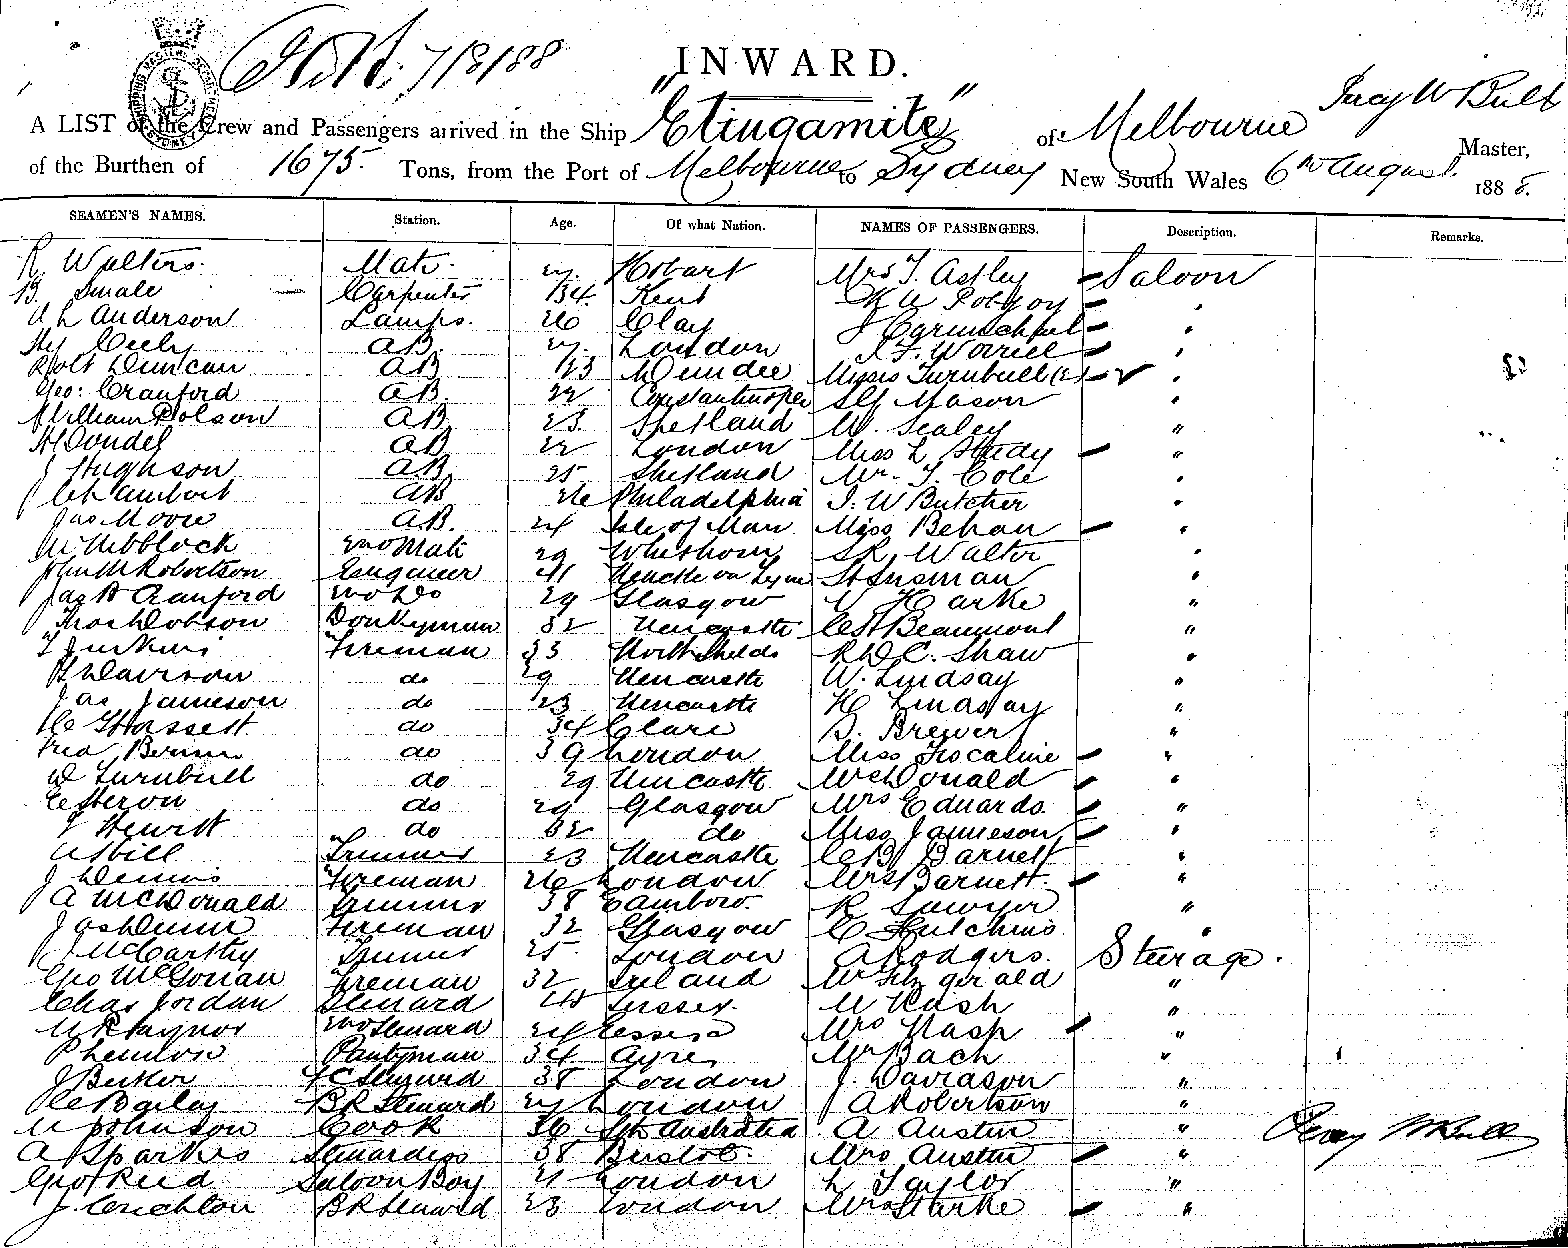 7/8/88
INWARD.
Percy W Bull
A LIST of the Crew and Passengers arrived in the Ship "Elingamite" of Melbourne Master,
of the Burthen of 1675 Tons, from the Port of Melbourne to Sydney New South Wales 6th August 1888.
SEAMEN'S NAMES. Station. Age. Of what Nation. NAMES OF PASSENGERS. Description. Remarks.
R Walters. Mate. 27. Hobart Mrs T. Astley Saloon
B. Smale Carpenter 34. Kent
A L Anderson Lamps. 26 Clay J Carmichael "
Hy Cully AB. 27. London J. F. Worrell "
Robt Duncan AB 23 Dundee Misses Turnbull (2) "
Geo: Cranford AB. 22 Constantinople Mason "
William Polson AB. 23 Shetland W. Sealey "
AB 22 London Miss L Study "
J Hughson AB. 25 Shetland Mr. T. Cole "
Lambert AB 26 Philadelphia J. W Butcher "
Jas Moore AB. 24 Isle of Man Miss Behan "
2nd Mate 29 Whithorn Walter "
John M Robertson Engineer 41 Newcastle on Tyne "
Jas H Cranford 2nd Do 29 Glasgow "
Thos Dobson Donkeyman 32 Newcastle C H Beaumont "
T Jenkins Fireman 33 North Shields R D C. Shaw "
Davison do 29 Newcastle W. Lindsay "
Jas Jameson do 23 Newcastle H Lindsay "
C Hassett do 34 Clare B. Brewer "
Fred do 39 London Miss "
D Turnbull do 29 Newcastle McDonald "
C Heron do 29 Glasgow Mrs Edwards. "
J Hewitt do 32 do Miss Jamieson "
Trimmer 23 Newcastle C B Barnett "
J Dennis Fireman 26 London Mrs Barnett. "
A McDonald Trimmer 38 R Sawyer "
Jas Dunn Fireman 32 Glasgow C Hutchins "
J McCarthy Trimmer 25 London A Rodgers. Steerage.
Geo McGowan Fireman 32 Ireland Mr Fitzgerald "
Chas Jordan Steward 40 Sussex. W Nash "
W Raynor 2nd Steward 24 Essex Mrs Nash "
P Pantryman 34 Ayre Mr Bach "
J Barker F C Steward 38 London J. Davidson "
C Bailey BR Steward 24 London J A Robertson "
W Johnson Cook 36 Sth Australia A Austin " Percy W Bull
A Sparkes Stewardess 38 Bristol. Mrs Austin "
Geo Reid Saloon Boy 21 London L Taylor "
J. Crichton BR Steward 23 London Mrs Starke "